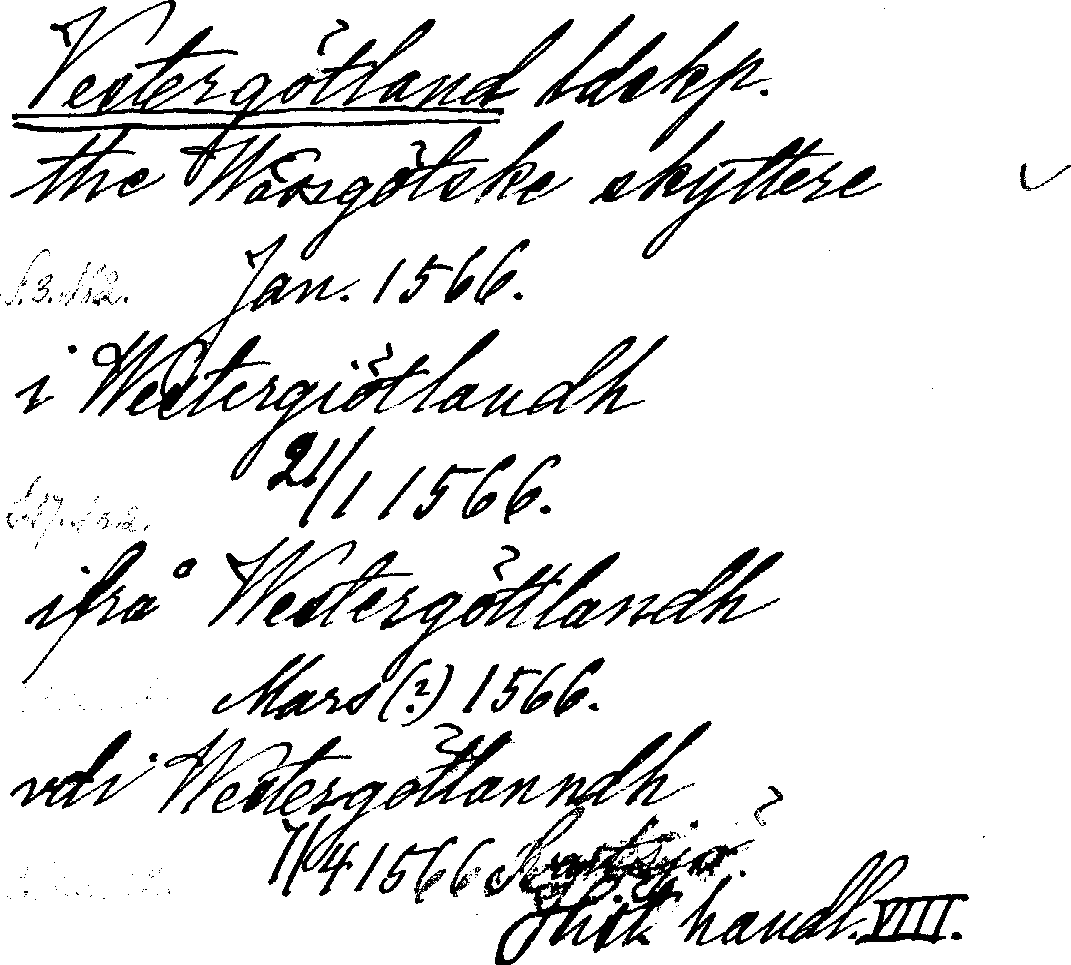 Vestergötland ldskp.
the Wäsgötske skyttere
S. 3. 152. Jan. 1566.
i Westergiötlandh
21/1 1566.
ifrå Westergöttlandh
Mars (?) 1566.
vdi Westergötlanndh
7/4 1566 Svartsjö.
Hist handl. VIII.